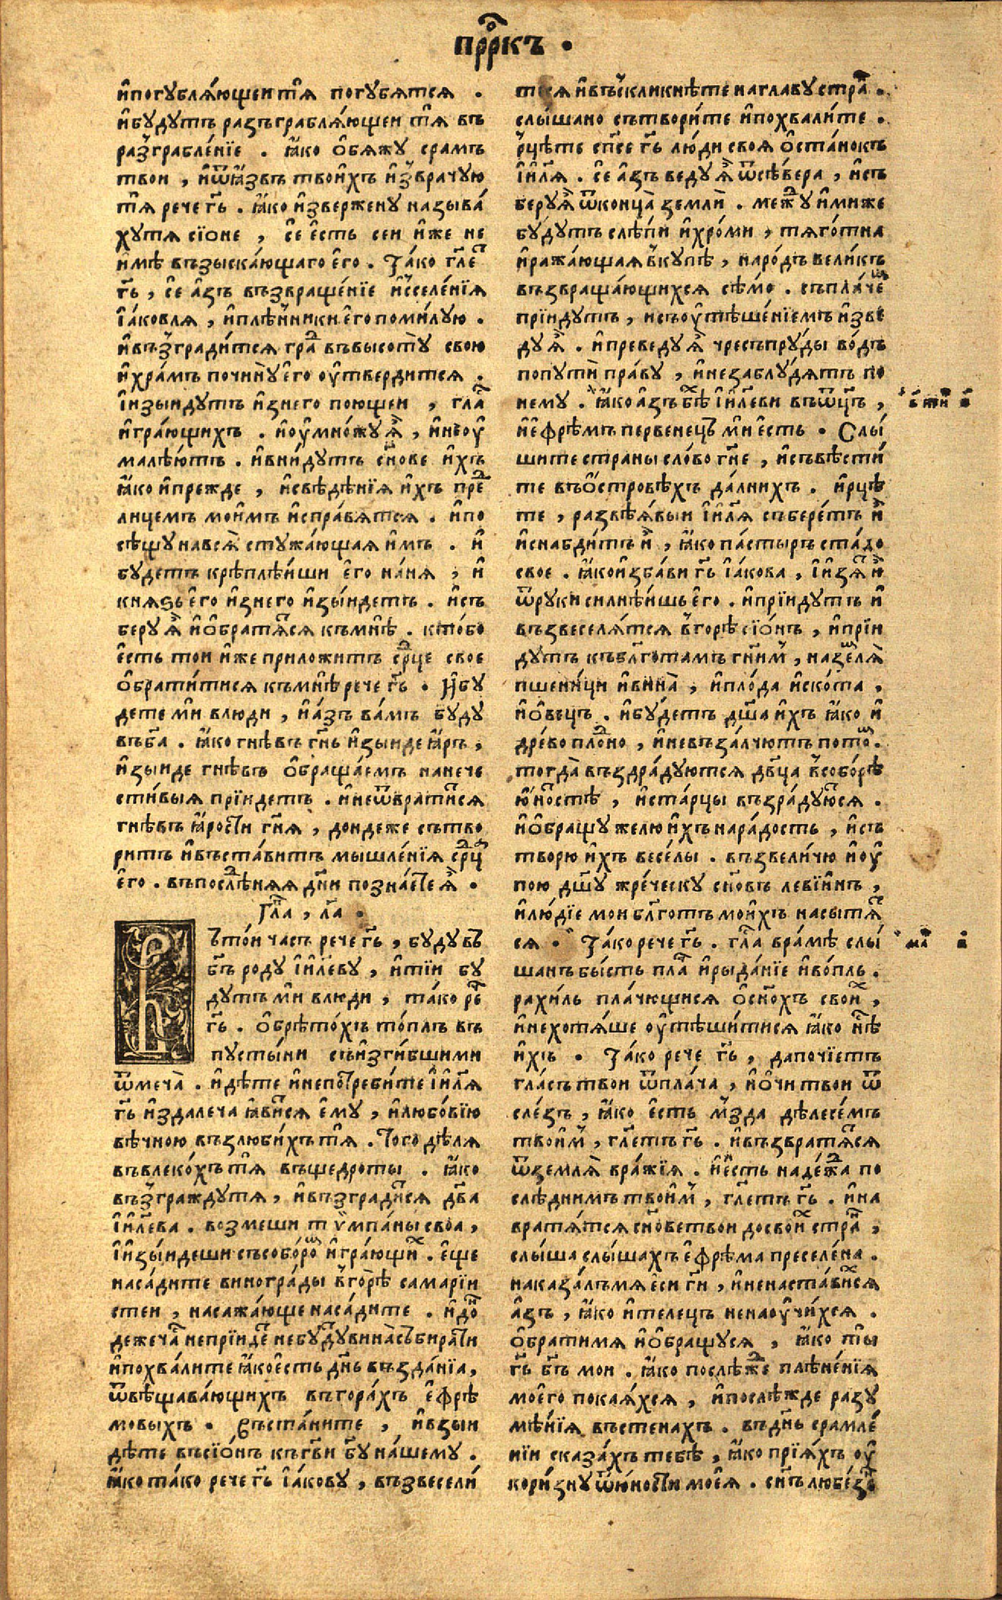 прⷪ҇ркъ .
и҆погꙋблѧ́ющеи тѧ̀ погꙋбѧтсѧ .
и҆бꙋдꙋтъ разъграблѧ́ющеи тѧ̀ въ
разграбле́нїе . ꙗ҆́ко ѻ҆бѧжꙋ срамъ
твои , и҆ѿꙗ҆́звъ твои́хъ и҆зврачꙋю
тѧ̀ рече гь҃ . ꙗ҆́ко и҆звержена называ́
хꙋтѧ сїѡне , се́ есть сеи и҆́же не
и҆мѣ̀ възыска́ющаго е҆го . Та́ко гл҃е
гь҃ , се́ а҆́зъ възвраще́нїе и҆селе́нїѧ
і҆а́ковлѧ , и҆плѣ́нники е҆го поми́лꙋю .
и҆възгради́тсѧ граⷣ въвысотꙋ̀ свою
и҆хра́мъ почи́нꙋ е҆го ᲂу҆твердитсѧ .
і҆изыидꙋтъ и҆знего поющеи , глаⷭ҇
и҆гра́ющихъ . и҆ᲂу҆мно́жꙋ ѧ҆̀ , и҆неᲂу҆
малѣ́ютъ . и҆вни́дꙋтъ сн҃ове и҆́хъ
ꙗ҆́ко и҆пре́жде , и҆свѣдѣ́нїѧ и҆́хъ преⷣ
лицемъ мои́мъ и҆спра́вѧтсѧ . и҆по
сѣщꙋ навсѧ̀ стꙋжа́ющаѧ и҆́мъ . и҆
бꙋдетъ крѣплѣ́иши е҆го на́нѧ , и҆
кнѧ́ѕь е҆го и҆знего и҆зы́идетъ . и҆съ
берꙋ ѧ҆̀ и҆ѻ҆братѧ́тсѧ къмнѣ̀ . кто́бо
е҆сть тои и҆́же приложитъ срⷣце свое
ѻ҆брати́тисѧ къмнѣ̀ рече гь҃ . И҆бꙋ
дете ми́ влюди , и҆а҆́зъ ва́мъ бꙋдꙋ
въба҃ . ꙗ҆́ко гнѣвъ гн҃ь и҆зыиде ꙗ҆́ръ ,
и҆зыиде гнѣвъ ѻ҆браща́емъ нанече
сти́выѧ прїидетъ . и҆неѿврати́тсѧ
гнѣвъ ꙗ҆́рости гн҃ѧ , дондеже сътво
ритъ и҆въста́витъ мышле́нїѧ срⷣца
е҆го . въпослѣ́днѧѧ дн҃и позна́ете ѧ҆̀ .
Глаⷡ҇ , л҃а .
Въто́и часъ рече гь҃ , бꙋдꙋ въ
бг҃ъ родꙋ і҆и҃левꙋ , и҆ті́и бꙋ
дꙋтъ ми́ влюди , та́ко реⷱ҇
гь҃ . ѻ҆брѣто́хъ то́плъ въ
пꙋсты́ни съи҆зги́бшими
ѿмеча̀ . и҆дѣ́те и҆непотреби́те і҆и҃лѧ
гь҃ и҆здалеча ꙗ҆ви́сѧ е҆мꙋ , и҆любо́вїю
вѣчною възлюби́хъ тѧ̀ . Того дѣлѧ
въвлеко́хъ тѧ̀ въщедроты . ꙗ҆́ко
възграждꙋтѧ , и҆възгради́сѧ дв҃а
і҆и҃лева . возмеши тѷмпа́ны своа ,
і҆изы́идеши съсоборо́мъ и҆гра́ющиⷯ . е҆ще
наса́дите виногра́ды вгорѣ̀ самарїи
стеи , насажа́юще наса́дите . и҆до́н
дежеча́съ неприидетъ небꙋдꙋтъ вина̀ събирати
и҆похва́лите ꙗ҆́коесть дн҃ь възда́нїа ,
ѿвѣщава́ющихъ въгора́хъ е҆фрѣ
мовыхъ . Въста́ните , и҆взыи
дѣте въсїо́нъ къгв҃и бг҃ꙋ на́шемꙋ .
ꙗ҆́ко та́ко рече гь҃ і҆а́ковꙋ , възвесели́
тесѧ и҆въскликнѣ́те наглавꙋ страⷩ҇ .
слы́шано сътвори́те и҆похвали́те .
рцѣ́те сп҃се гь҃ лю́ди своѧ ѻ҆ста́нокъ
і҆и҃лѧ . се́ а҆́зъ ведꙋ ѧ҆̀ ѿсѣ́вера , и҆съ
берꙋ ѧ҆̀ ѿконца̀ землѝ . межⷣꙋ и҆миже
бꙋдꙋтъ слѣ́пїи и҆хро́ми , тѧго́тна
и҆ража́ющаѧ вкꙋпѣ , наро́дъ великъ
възвраща́ющихсѧ сѣ́мо . съпла́чеⷨ
прїидꙋтъ , и҆съᲂу҆тѣше́нїемъ и҆зве
дꙋ ѧ҆̀ . и҆преведꙋ ѧ҆̀ чресъпрꙋ́ды во́дъ
попꙋти̇ пра́вꙋ , и҆незаблꙋдѧтъ по
немꙋ . ꙗ҆́ко а҆́зъ бѣⷯ і҆и҃леви въѿц҃ъ ,
и҆е҆фрѣмъ первенецъ ми́ есть . Слы́
шите страны сло́во гн҃е , и҆съвѣсти́
те въѻ҆стровѣ́хъ да́лнихъ . и҆рцѣ
те , развѣ́ѧвыи і҆и҃лѧ събере́тъ и҆̀
и҆снабди́тъ и҆̀ , ꙗ҆́ко па́стырь ста́до
свое . ꙗ҆́коизба́ви гь҃ і҆а́кова , і҆изѧ́тъ и҆̀
ѿрꙋки силнѣ́ишь е҆го . и҆прїидꙋтъ и҆
възвеселѧтсѧ вгорѣ сїо́нъ , и҆прїи
дꙋтъ къблг҃отамъ гн҃имъ , наземлѧ̀
пшени́ци и҆вина̀ , и҆пло́да и҆скота ,
и҆ѻ҆ве́цъ . и҆бꙋдетъ дш҃а и҆́хъ ꙗ҆́ко и҆
дре́во плоⷣно , и҆невъза́лчютъ потоⷨ .
тогда̀ въздра́дꙋютсѧ дв҃ца всобо́рѣ
ю҆́ностѣ , и҆ста́рцы възра́дꙋютсѧ .
и҆ѻ҆бращꙋ желю и҆́хъ нарадость , и҆съ
творю и҆́хъ весе́лы . възвели́чю и҆ᲂу҆
пою дш҃ꙋ жре́ческꙋ сн҃овъ леві́инъ ,
и҆лю́дїе мои блг҃отъ мои́хъ насытѧ́т
сѧ . Та́ко рече гь҃ . глаⷭ҇ вра́мѣ слы́
шанъ бы́сть плаⷱ҇ и҆рыда́нїе и҆во́пль .
рахи́ль пла́чющисѧ ѻ҆сн҃охъ своиⷯ ,
и҆нехотѧ́ше ᲂу҆тѣши́тисѧ ꙗ҆́ко нѣⷭ҇
и҆́хъ . Та́ко рече гь҃ , дапочі́етъ
гла́съ твои ѿпла́ча , и҆ѻ҆чи твои ѿ
сле́зъ , ꙗ҆́ко е҆сть мзда дѣлесе́мъ
твои́мъ , гл҃етъ гь҃ . и҆възвратѧ́тсѧ
ѿземлѧ̀ вра́жїѧ . и҆е҆́сть наде́жⷣа по
слѣднимъ твои́мъ , гл҃етъ гь҃ . и҆на
вратѧ́тсѧ сн҃оветвои досвоиⷯ страⷩ҇ ,
слы́ша слы́шахъ е҆фрѣма преселе́на .
наказа́лъмѧ е҆си гн҃и , и҆ненаста́вихсѧ
а҆́зъ , ꙗ҆́ко и҆телецъ ненаᲂу҆чи́хсѧ .
ѻ҆братимѧ и҆ѻ҆бращꙋсѧ , ꙗ҆́ко ты̀
гь҃ бг҃ъ мои . ꙗ҆́ко послѣжⷣе плѣне́нїѧ
моего покаѧ́хсѧ , и҆послѣ́жде разꙋ
мѣ́нїѧ въстенахъ . въдн҃ь срамле́
нїи сказа́хъ тебѣ , ꙗ҆́ко прїѧ́хъ ᲂу҆
кори́знꙋ ѿю҆ности моеѧ . сн҃ъ любе́зе